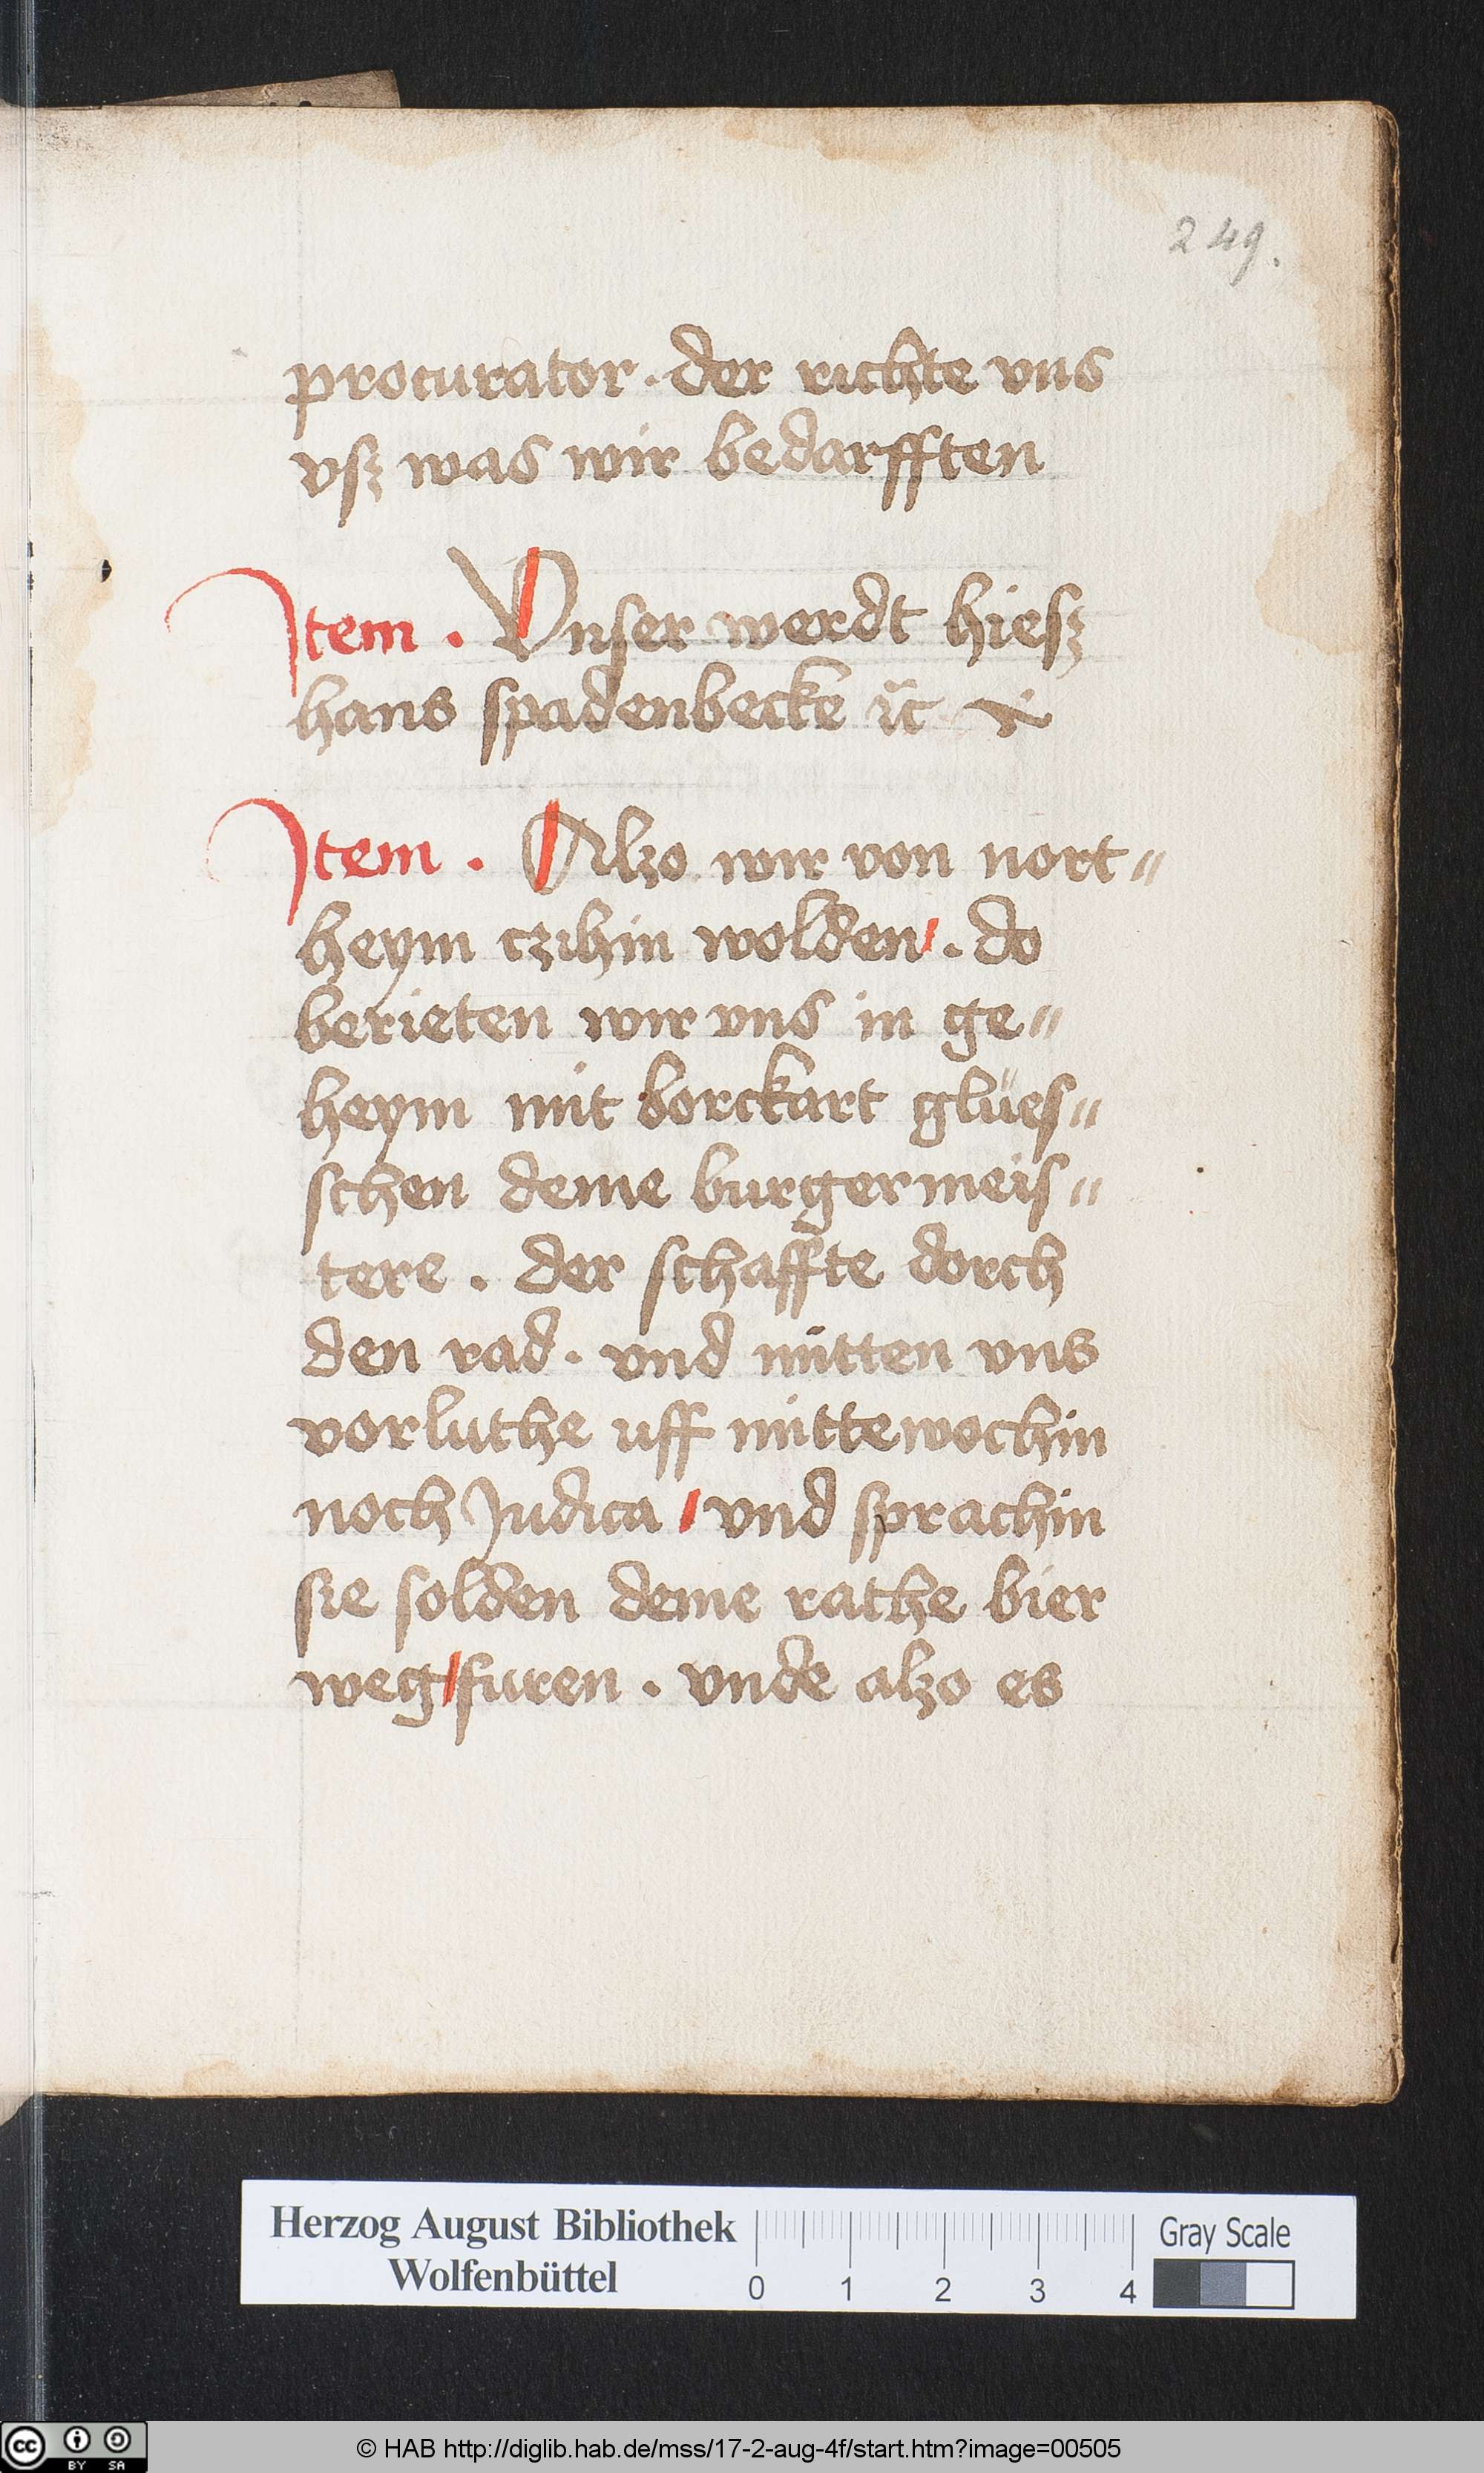 249.
procurator · der richte vns
vsz was wir bedarfften
Item . Vnser werdt hiesz
hans spadenbecke ꝛc
Item . Alzo wir von nort〃
heym czihin wolden . do
berieten wir vns in ge〃
heym mit borckart glües〃
schen deme burgermeis〃
tere . der schaffte dorch
den rad . vnd mitten vns
vorluthe uff mittewochin
noch Judica / vnd sprachin
sie solden deme rathe bier
weg/furen . vnde alzo es
Herzog August Bibliothek
Wolfenbüttel
0 1 2 3 4
Gray Scale
cc BY SA
© HAB http://diglib.hab.de/mss/17-2-aug-4f/start.htm?image=00505